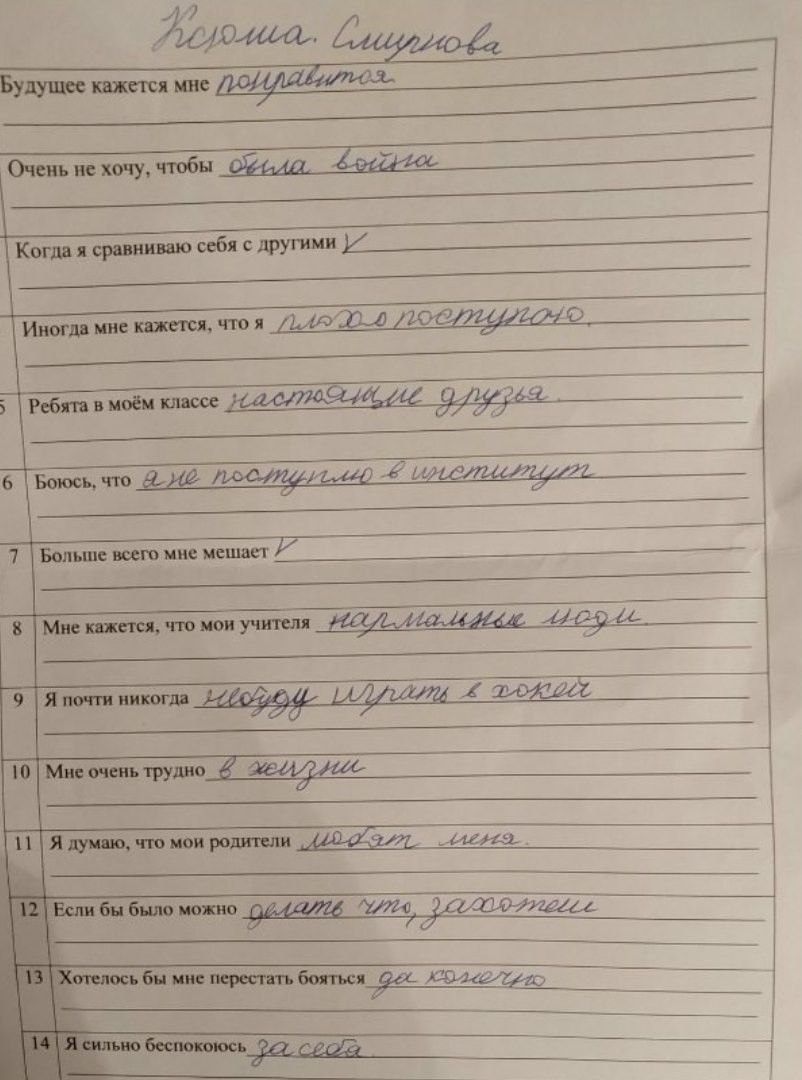 Ксюша. Смирнова
Будущее кажется мне понравится
Очень не хочу, чтобы была война
Когда я сравниваю себя с другими V
Иногда мне кажется, что я плохо поступаю.
5 Ребята в моём классе настоящие друзья.
6 Боюсь, что я не поступлю в институт
7 Больше всего мне мешает V
8 Мне кажется, что мои учителя нармальные люди.
9 Я почти никогда небуду играть в хокей
10 Мне очень трудно в жизни
11 Я думаю, что мои родители любят меня.
12 Если бы было можно делать что, захотели
13 Хотелось бы мне перестать бояться да конечно
14 Я сильно беспокоюсь за себя.